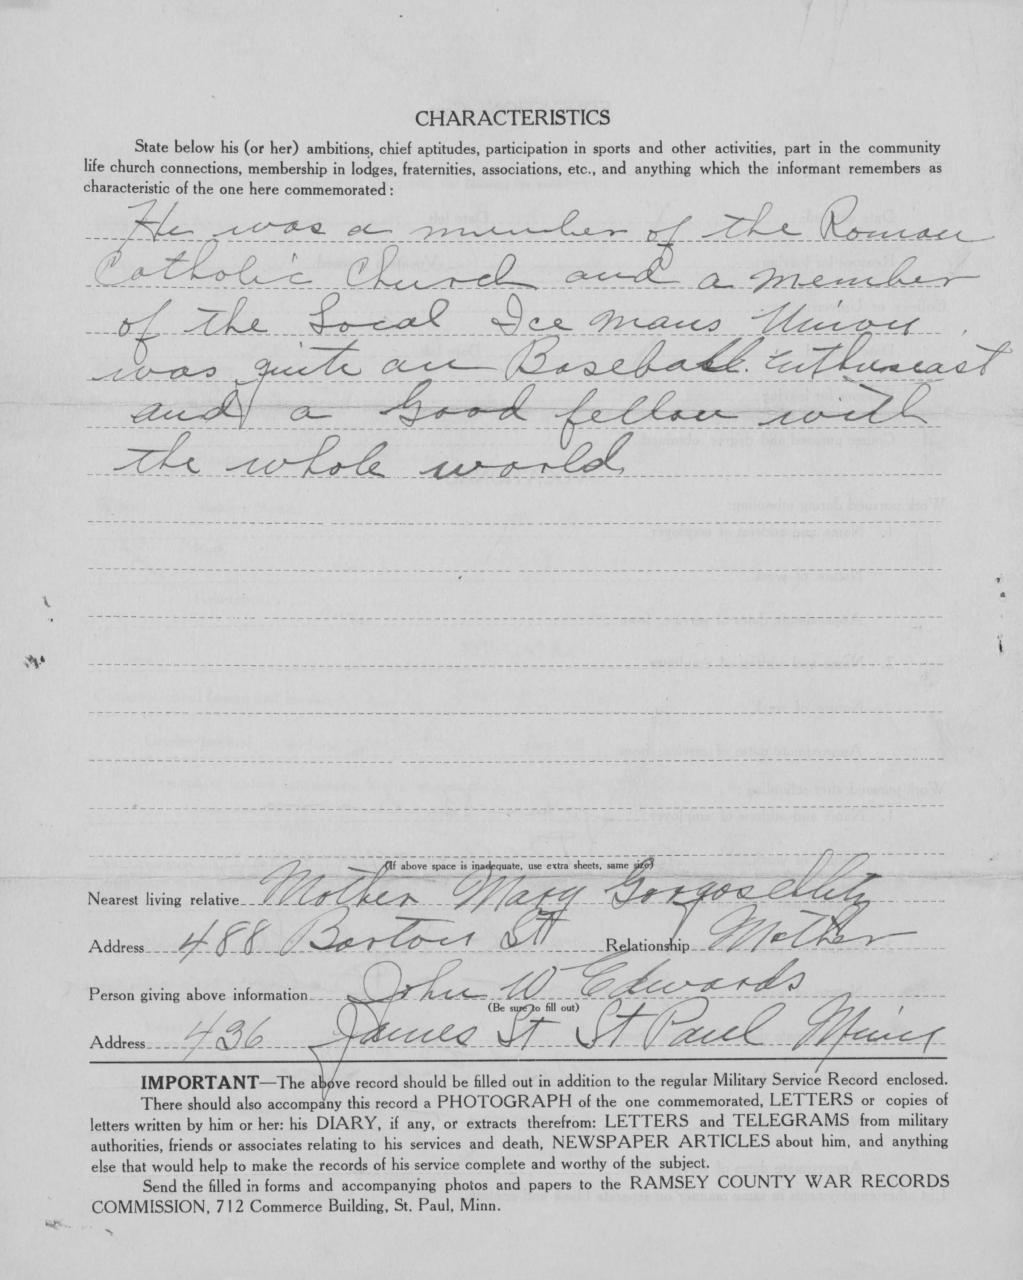 CHARACTERISTICS
State below his (or her) ambitions, chief aptitudes, participation in sports and other activities, part in the community
life church connections, membership in lodges, fraternities, associations, etc., and anything which the informant remembers as
characteristic of the one here commemorated:
He was a member of the Roman
Catholic Church and a member
of the Local Ice mans Union
was quite an Baseball enthuseast
and a Good fellow with
the whole world
(If above space is inadequate, use extra sheets, same size)
Nearest living relative Mother Mary
Address 488 Barton St Relationship Mother
Person giving above information John W Edwards
(Be sure to fill out)
Address 436 James St St Paul Minn
IMPORTANT—The above record should be filled out in addition to the regular Military Service Record enclosed.
There should also accompany this record a PHOTOGRAPH of the one commemorated, LETTERS or copies of
letters written by him or her: his DIARY, if any, or extracts therefrom: LETTERS and TELEGRAMS from military
authorities, friends or associates relating to his services and death, NEWSPAPER ARTICLES about him, and anything
else that would help to make the records of his service complete and worthy of the subject.
Send the filled in forms and accompanying photos and papers to the RAMSEY COUNTY WAR RECORDS
COMMISSION, 712 Commerce Building, St. Paul, Minn.